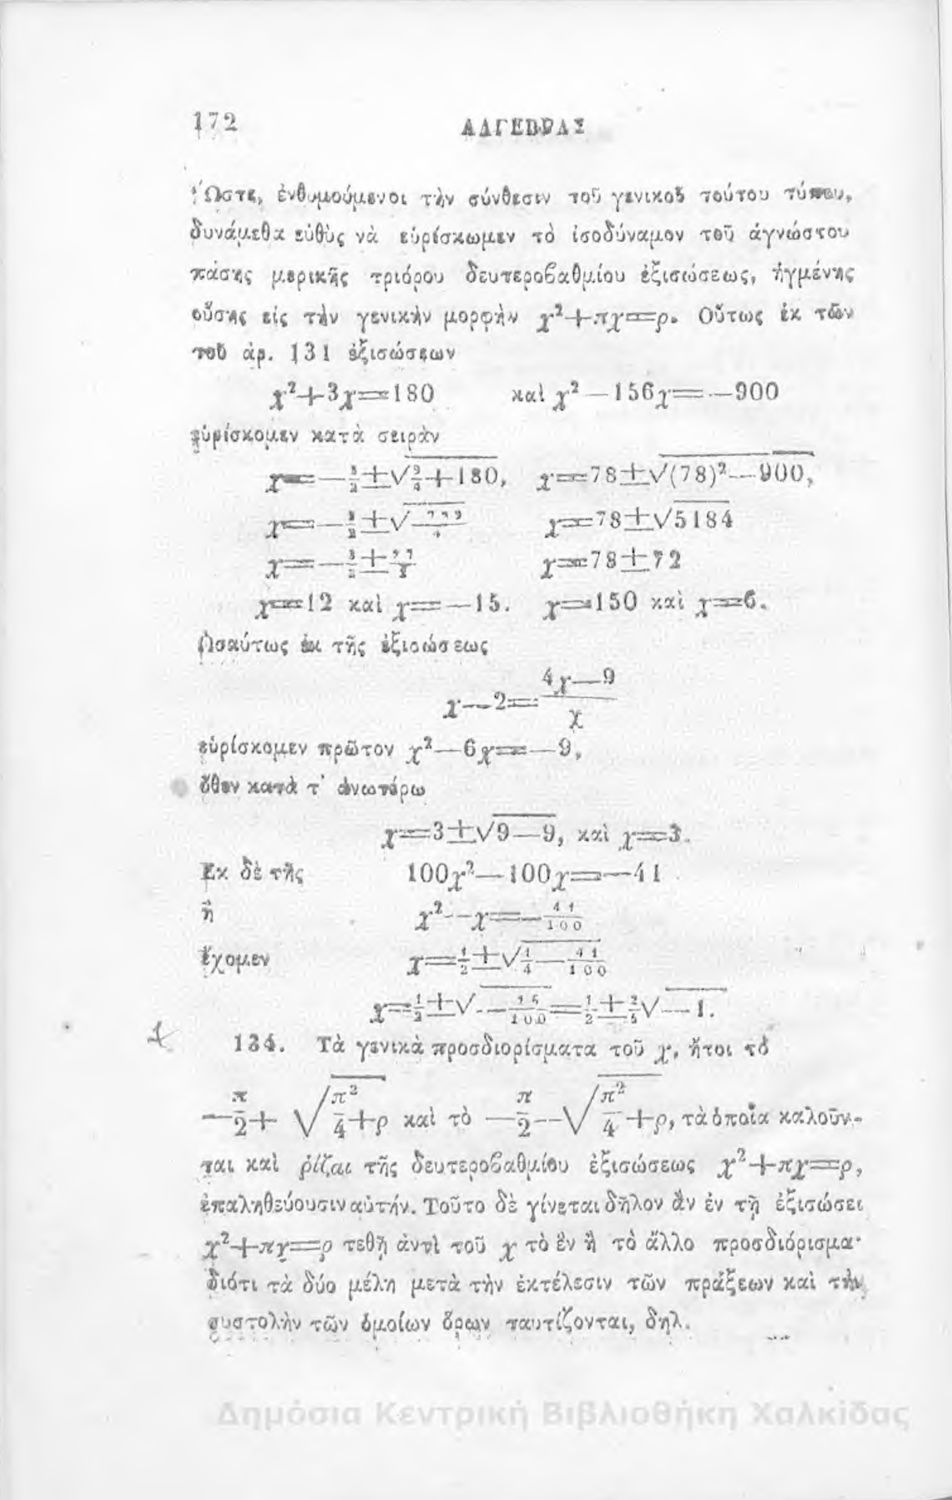 172 ΑΛΓΕΒΡΑΣ
Ὥστε, ἐνθυμούμενοι τὴν σύνθεσιν τοῦ γενικοῦ τούτου τύπου,
δυνάμεθα εὐθὺς νὰ εὑρίσκωμεν τὸ ἰσοδύναμον τοῦ ἀγνώστου
πάσης μερικῆς τριόρου δευτεροβαθμίου ἐξισώσεως, ἠγμένης
οὔσης εἰς τὴν γενικὴν μορφὴν χ²+πχ=ρ. Οὕτως ἐκ τῶν
τοῦ ἀρ. 131 ἐξισώσεων
χ²+3χ=180 καὶ χ²—156χ=—900
εὑρίσκομεν κατὰ σειρὰν
χ=—3/2±√9/4+180, χ=78±√(78)²—900,
χ=—3/2±√729/4 χ=78±√5184
χ=—3/2±27/2 χ=78±72
χ=12 καὶ χ=—15. χ=150 καὶ χ=6.
Ὡσαύτως ἐκ τῆς ἐξισώσεως
χ—2=4χ—9/χ
εὑρίσκομεν πρῶτον χ²—6χ=—9,
ὅθεν κατὰ τ' ἀνωτέρω
χ=3±√9—9, καὶ χ=3.
Ἐκ δὲ τῆς 100χ²—100χ=—41
ἢ χ²—χ=—41/100
ἔχομεν χ=1/2±√1/4—41/100
χ=1/2±√—16/100=1/2±2/5√—1.
134. Τὰ γενικὰ προσδιορίσματα τοῦ χ, ἤτοι τὸ
—π/2+√π²/4+ρ καὶ τὸ —π/2—√π²/4+ρ, τὰ ὁποῖα καλοῦν-
ται καὶ ῥίζαι τῆς δευτεροβαθμίου ἐξισώσεως χ²+πχ=ρ,
ἐπαληθεύουσιν αὐτήν. Τοῦτο δὲ γίνεται δῆλον ἂν ἐν τῇ ἐξισώσει
χ²+πχ=ρ τεθῇ ἀντὶ τοῦ χ τὸ ἓν ἢ τὸ ἄλλο προσδιόρισμα·
διότι τὰ δύο μέλη μετὰ τὴν ἐκτέλεσιν τῶν πράξεων καὶ τὴν
συστολὴν τῶν ὁμοίων ὅρων ταυτίζονται, δηλ.
Δημόσια Κεντρική Βιβλιοθήκη Χαλκίδας